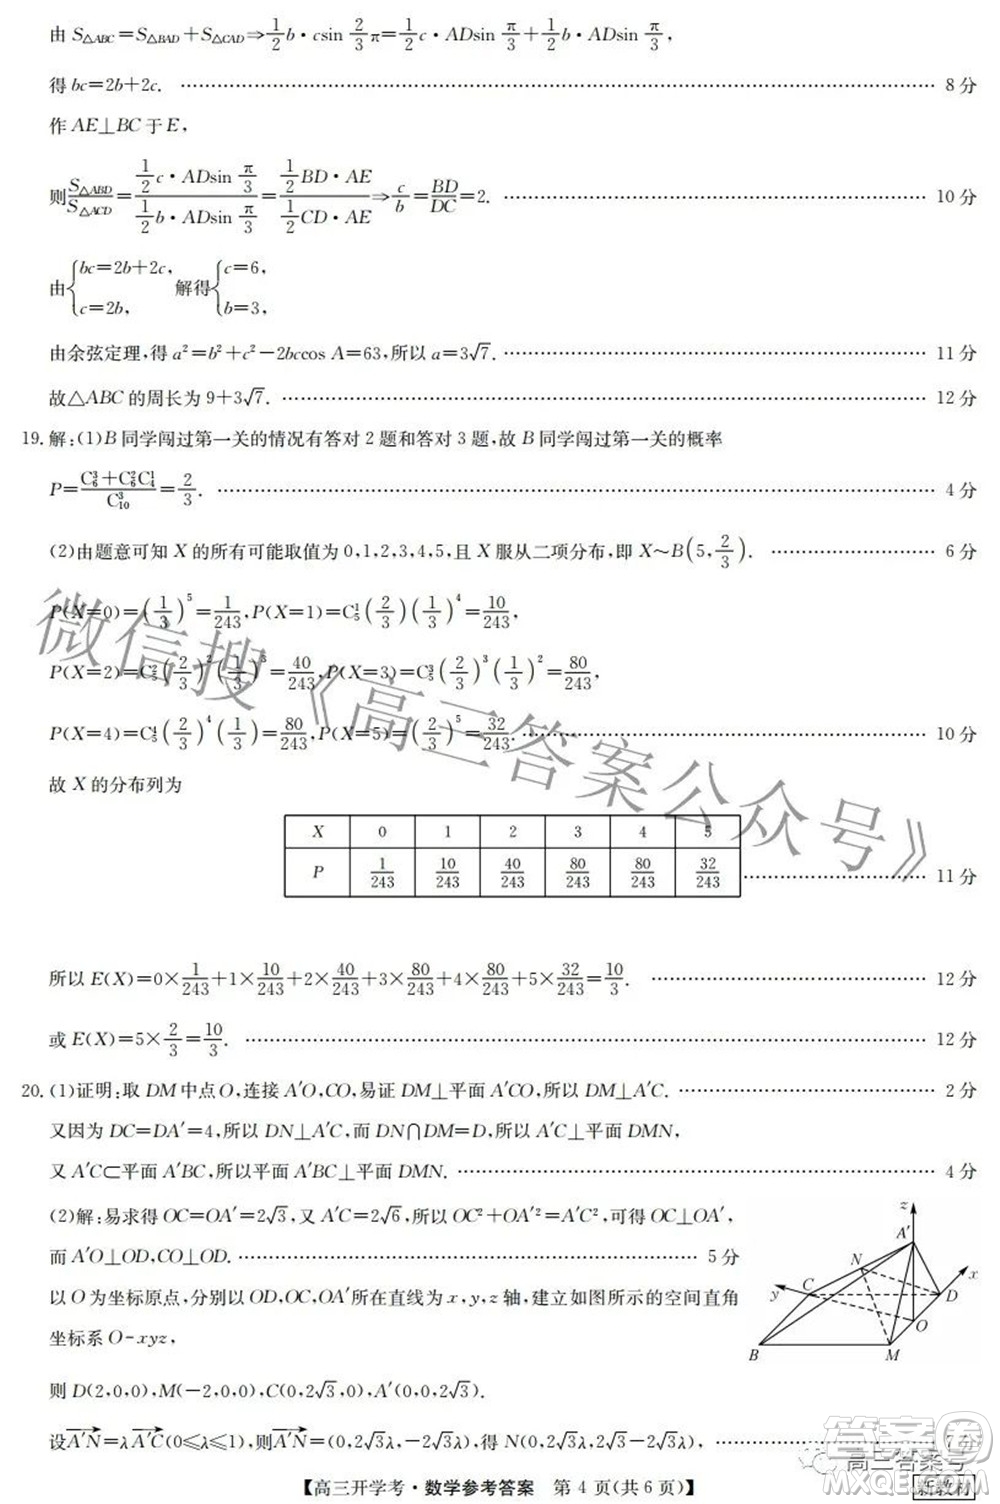 由 S△ABC=S△BAD+S△CAD⇒1/2 b·csin 2/3 π=1/2 c·ADsin π/3+1/2 b·ADsin π/3,
得 bc=2b+2c. ………… 8 分
作 AE⊥BC 于 E,
则 S△ABD/S△ACD=(1/2 c·ADsin π/3)/(1/2 b·ADsin π/3)=(1/2 BD·AE)/(1/2 CD·AE)⇒c/b=BD/DC=2. ………… 10 分
由{bc=2b+2c, c=2b, 解得{c=6, b=3,
由余弦定理,得 a²=b²+c²-2bccos A=63,所以 a=3√7. ………… 11 分
故△ABC 的周长为 9+3√7. ………… 12 分
19. 解:(1)B 同学闯过第一关的情况有答对 2 题和答对 3 题,故 B 同学闯过第一关的概率
P=(C₆³+C₆²C₄¹)/C₁₀³=2/3. ………… 4 分
(2)由题意可知 X 的所有可能取值为 0,1,2,3,4,5,且 X 服从二项分布,即 X~B(5,2/3). ………… 6 分
P(X=0)=(1/3)⁵=1/243,P(X=1)=C₅¹(2/3)(1/3)⁴=10/243,
P(X=2)=C₅²(2/3)²(1/3)³=40/243,P(X=3)=C₅³(2/3)³(1/3)²=80/243,
P(X=4)=C₅⁴(2/3)⁴(1/3)=80/243,P(X=5)=(2/3)⁵=32/243. ………… 10 分
故 X 的分布列为
X 0 1 2 3 4 5
P 1/243 10/243 40/243 80/243 80/243 32/243 ………… 11 分
所以 E(X)=0×1/243+1×10/243+2×40/243+3×80/243+4×80/243+5×32/243=10/3. ………… 12 分
或 E(X)=5×2/3=10/3. ………… 12 分
20. (1)证明:取 DM 中点 O,连接 A′O,CO,易证 DM⊥平面 A′OC,所以 DM⊥A′C. ………… 2 分
又因为 DC=DA′=4,所以 DN⊥A′C,而 DN∩DM=D,所以 A′C⊥平面 DMN,
又 A′C⊂平面 A′BC,所以平面 A′BC⊥平面 DMN. ………… 4 分
(2)解:易求得 OC=OA′=2√3,又 A′C=2√6,所以 OC²+OA′²=A′C²,可得 OC⊥OA′,
而 A′O⊥OD,CO⊥OD. ………… 5 分
以 O 为坐标原点,分别以 OD,OC,OA′所在直线为 x,y,z 轴,建立如图所示的空间直角
坐标系 O-xyz,
z
A′
N
x
C
y
D
O
B
M
则 D(2,0,0),M(-2,0,0),C(0,2√3,0),A′(0,0,2√3).
设A′N=λA′C(0≤λ≤1),则A′N=(0,2√3λ,-2√3λ),得 N(0,2√3λ,2√3-2√3λ), ………… 7 分
【高三开学考·数学参考答案 第 4 页(共 6 页)】
新教材
微信搜《高三答案公众号》
高三答案号
答案圈
MXQE.COM